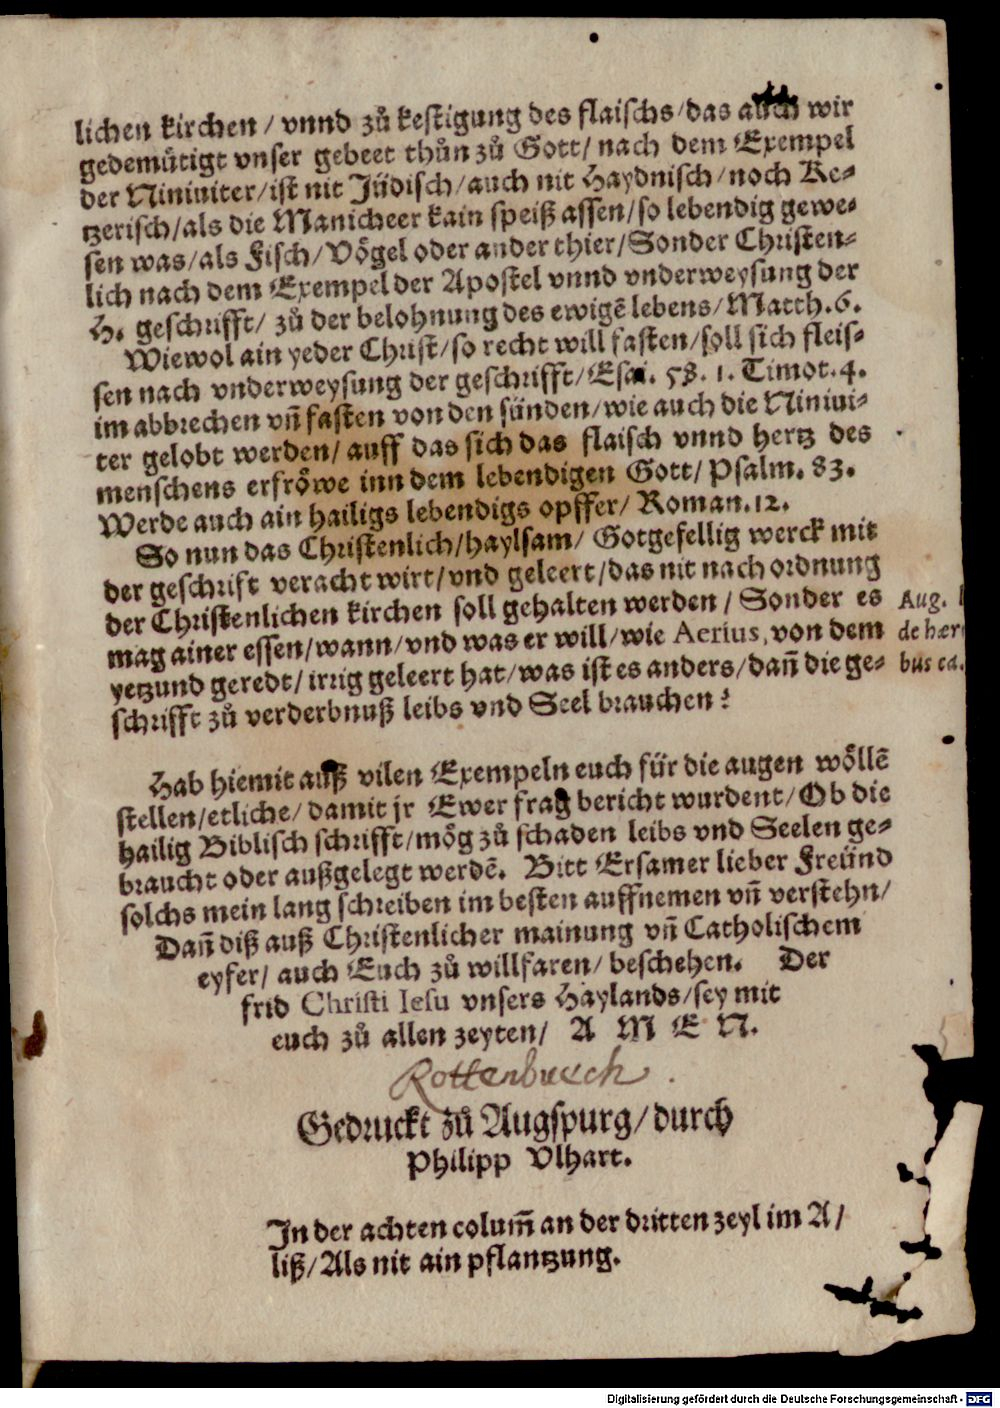 lichen kirchen / vnnd zů kestigung des flaischs / das auch wir
gedemütigt vnser gebeet thůn zů Gott / nach dem Exempel
der Niniuiter / ist nit Jüdisch / auch nit Haydnisch / noch Ke⸗
tzerisch / als die Manicheer kain speiß assen / so lebendig gewe⸗
sen was / als Fisch / Vögel oder ander thier / Sonder Christen⸗
lich nach dem Exempel der Apostel vnnd vnderweysung der
H. geschrifft / zů der belohnung des ewigẽ lebens / Matth. 6.
Wiewol ain yeder Christ / so recht will fasten / soll sich fleis⸗
sen nach vnderweysung der geschrifft / Esai. 58. 1. Timot. 4.
im abbrechen vñ fasten von den sünden / wie auch die Niniui⸗
ter gelobt werden / auff das sich das flaisch vnnd hertz des
menschens erfröwe inn dem lebendigen Gott / Psalm. 83.
Werde auch ain hailigs lebendigs opffer / Roman. 12.
So nun das Christenlich / haylsam / Gotgefellig werck mit
der geschrift veracht wirt / vnd geleert / das nit nach ordnung
der Christenlichen kirchen soll gehalten werden / Sonder es
mag ainer essen / wann / vnd was er will / wie Aerius, von dem
yetzund geredt / irrig geleert hat / was ist es anders / dañ die ge⸗
schrifft zů verderbnuß leibs vnd Seel brauchen?
Aug.
de hær
bus ca.
Hab hiemit auß vilen Exempeln euch für die augen wöllẽ
stellen / etliche / damit jr Ewer frag bericht wurdent / Ob die
hailig Biblisch schrifft / mög zů schaden leibs vnd Seelen ge⸗
braucht oder außgelegt werdẽ. Bitt Ersamer lieber Freünd
solchs mein lang schreiben im besten auffnemen vñ verstehn /
Dañ diß auß Christenlicher mainung vñ Catholischem
eyfer / auch Euch zů willfaren / beschehen. Der
frid Christi Iesu vnsers Haylands / sey mit
euch zů allen zeyten / A M E N.
Rottenbuech.
Gedruckt zů Augspurg / durch
Philipp Vlhart.
In der achten colum̃ an der dritten zeyl im A /
liß / Als nit ain pflantzung.
Digitalisierung gefördert durch die Deutsche Forschungsgemeinschaft - DFG